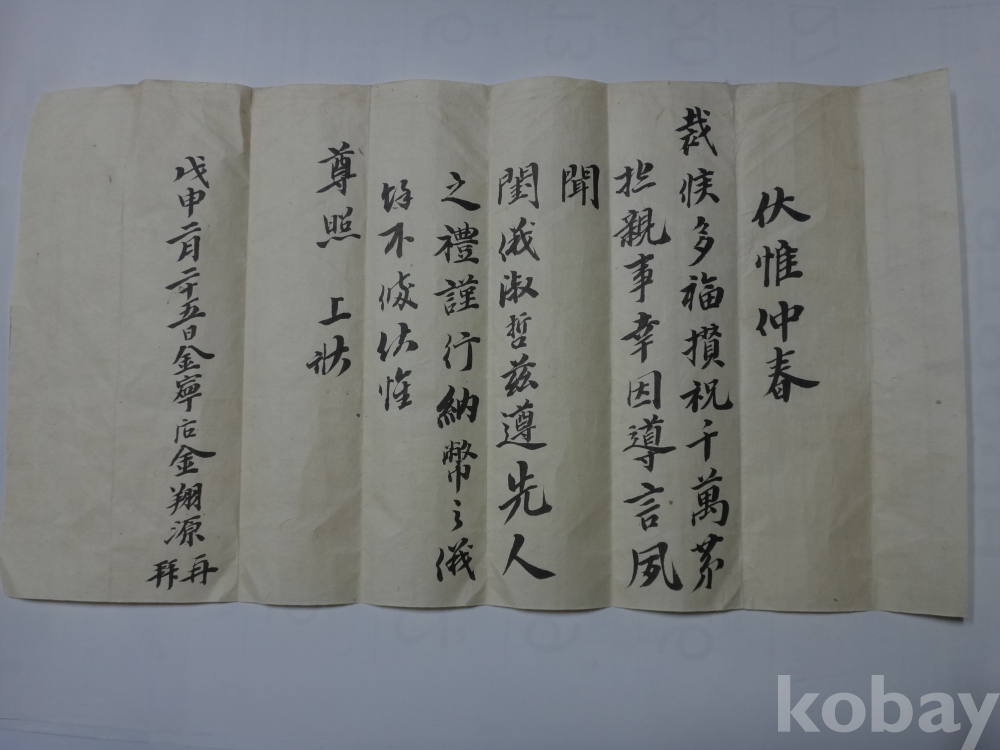 伏惟仲春
裁候多福攢祝千萬第
挩親事幸因導言夙
聞
閨儀淑哲茲遵先人
之禮謹行納幣之儀
餘不俊伏惟
尊照 上狀
戊申二月二十五日金寧后金翔源 再拜
kobay